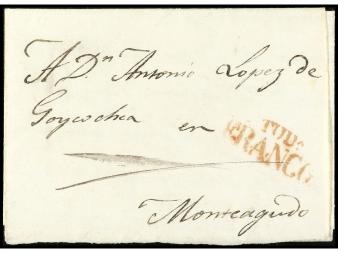 A Dn Antonio Lopez de
Goycochea en
TODO
FRANCO
Monteagudo